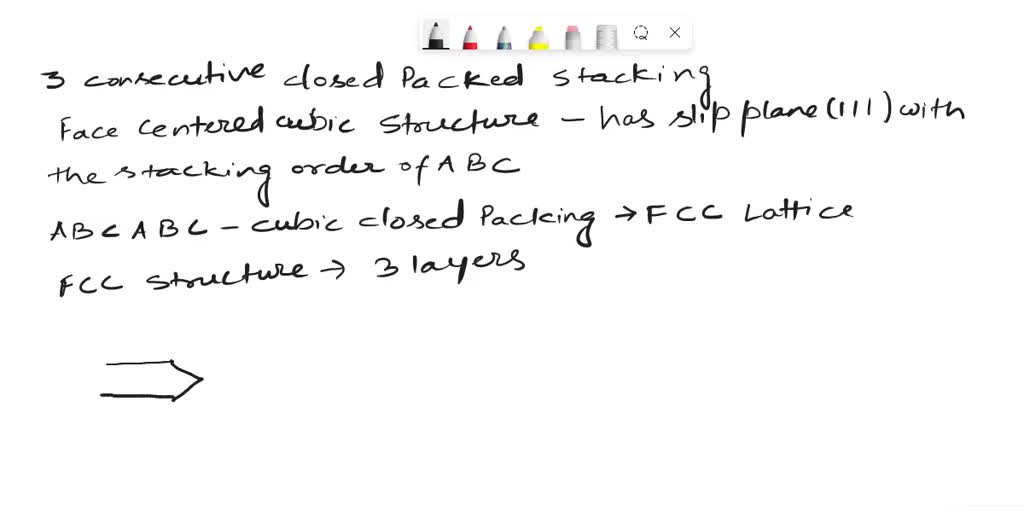 3 consecutive closed Packed stacking
Face centered cubic structure - has slip plane (111) with
the stacking order of ABC
ABCABC - cubic closed Packing → FCC Lattice
FCC structure → 3 layers